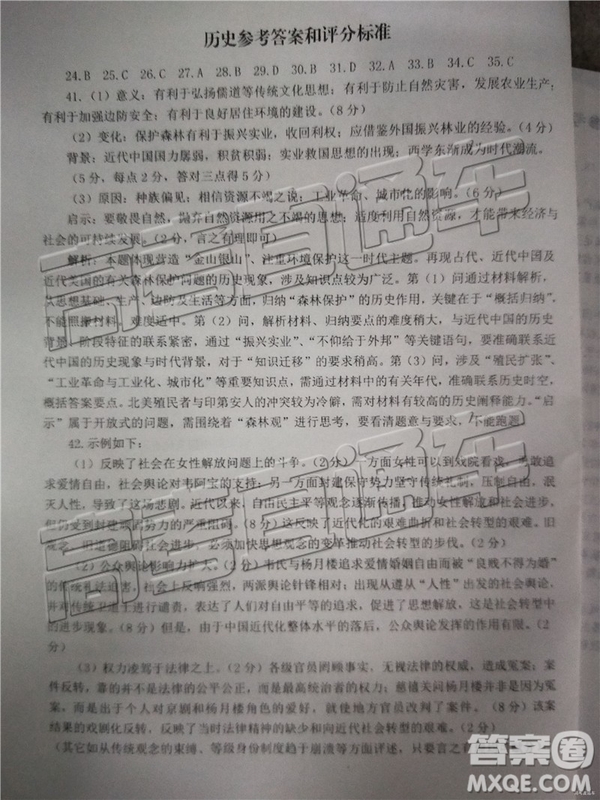 历史参考答案和评分标准
24.B 25.C 26.C 27.A 28.B 29.D 30.B 31.D 32.A 33.B 34.C 35.C
41.（1）意义：有利于弘扬儒道等传统文化思想；有利于防止自然灾害，发展农业生产；
有利于加强边防安全；有利于良好居住环境的建设。（8分）
（2）变化：保护森林有利于振兴实业，收回利权；应借鉴外国振兴林业的经验。（4分）
背景：近代中国国力孱弱，积贫积弱；实业救国思想的出现；西学东渐成为时代潮流。
（5分，每点2分，答对三点得5分）
（3）原因：种族偏见；相信资源不竭之说；工业革命、城市化的影响。（6分）
启示：要敬畏自然，抛弃自然资源用之不竭的思想；适度利用自然资源，才能带来经济与
社会的可持续发展。（2分，言之有理即可）
解析：本题体现营造“金山银山”、注重环境保护这一时代主题。再现古代、近代中国及
近代美国的有关森林保护问题的历史现象，涉及知识点较为广泛。第（1）问通过材料解析，
从思想基础、生产、边防及生活等方面，归纳“森林保护”的历史作用，关键在于“概括归纳”，
不能照搬材料，难度适中。第（2）问，解析材料、归纳要点的难度稍大，与近代中国的历史
背景、阶段特征的联系紧密，通过“振兴实业”、“不仰给于外邦”等关键语句，要联系近
代中国的历史现象与时代背景，对于“知识迁移”的要求稍高。第（3）问，涉及“殖民扩张”、
“工业革命与工业化、城市化”等重大问题，需通过材料中的有关年代，准确联系历史时空，
概括答案要点。北美殖民者与印第安人的冲突较为冷僻，需对材料准确分析与概括归纳。“启
示”属于开放式的问题，需围绕着“森林观”进行思考，要看清题意与要求，不能跑题
42.示例如下：
（1）反映了社会在女性解放问题上的斗争。（2分）一方面女性可以到戏院看戏，勇敢追
求爱情自由，社会舆论对韦阿宝的支持；另一方面封建保守势力坚守传统礼制，压制自由、泯
灭人性，导致了这场悲剧。近代以来，自由民主平等观念逐渐传播，推动女性解放和社会进步，
但仍受到封建顽固势力的严重阻碍。（8分）这反映了近代化的艰难曲折和社会转型的艰难。旧
，必须加快思想观念的变革推动社会转型的步伐。（2分）
（2）公众舆论影响力扩大。（2分）韦氏与杨月楼追求爱情婚姻自由而被“良贱不得为婚”
的传统礼法迫害，社会上反响强烈，两派舆论针锋相对；出现从遵从“人性”出发的社会舆论，
并对传统礼数等提出了质疑，表达了人们对自由平等的追求，促进了思想解放，这是社会转型中
的进步现象。（8分）但是，由于中国近代化整体水平的落后，公众舆论发挥的作用有限。（2
分）
（3）权力凌驾于法律之上。（2分）各级官员罔顾事实、无视法律的权威、造成冤案；
案件反转，靠的并不是法律的公平公正，而是最高统治者的权力；慈禧关问杨月楼的冤案，
由于个人对京剧和杨月楼角色的爱好，就使地方官员改判了案件。（8分）该案
结果的戏剧化反转，反映了当时法律精神的缺失和向近代社会转型的艰难。（2分）
（其它如从传统观念的束缚、等级身份制度趋于崩溃等方面评述，只要言之有
高考直通车
高考直通车
答案圈
MXQE.COM